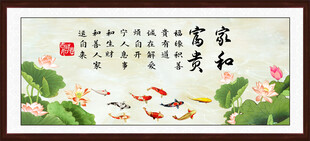 家和
富贵
福缘积善
贵有道
诚在解爱
烦自开
宁人息事
和生财
和善人家
运自来